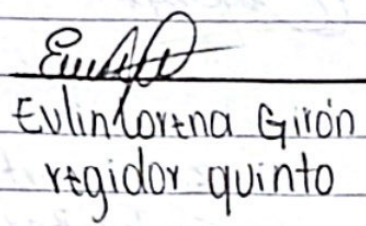 Evlin Lorena Girón
regidor quinto